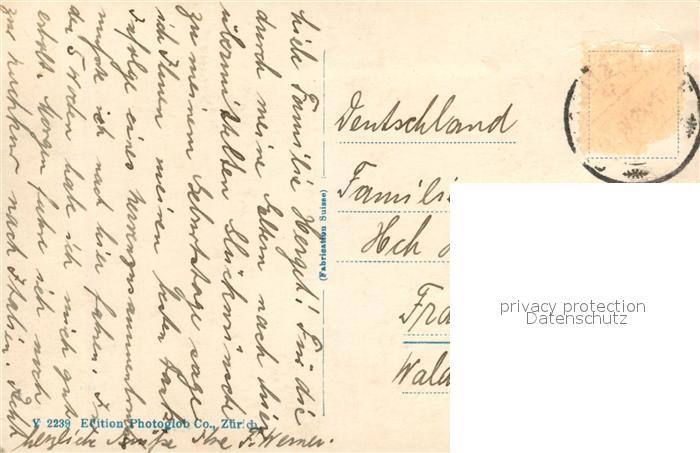 Lieb Familie Herget! Für die
durch meine Eltern nach hier
übermittelten Glückwünsche
zu meinem Geburtstage sage
ich Ihnen meinen besten Dank
Infolge eines Nervenzusammenbruch
mußte ich nach hier fahren. In
den 5 Wochen habe ich mich gut
erholt. Morgen fahre ich noch
zur Nachkur nach Italien.
herzliche Grüße Ihr F. Werner.
(Fabrication Suisse)
Y 2239 Edition Photoglob Co., Zürich
Deutschland
Famili
Hch
Fra
Wald
privacy protection
Datenschutz